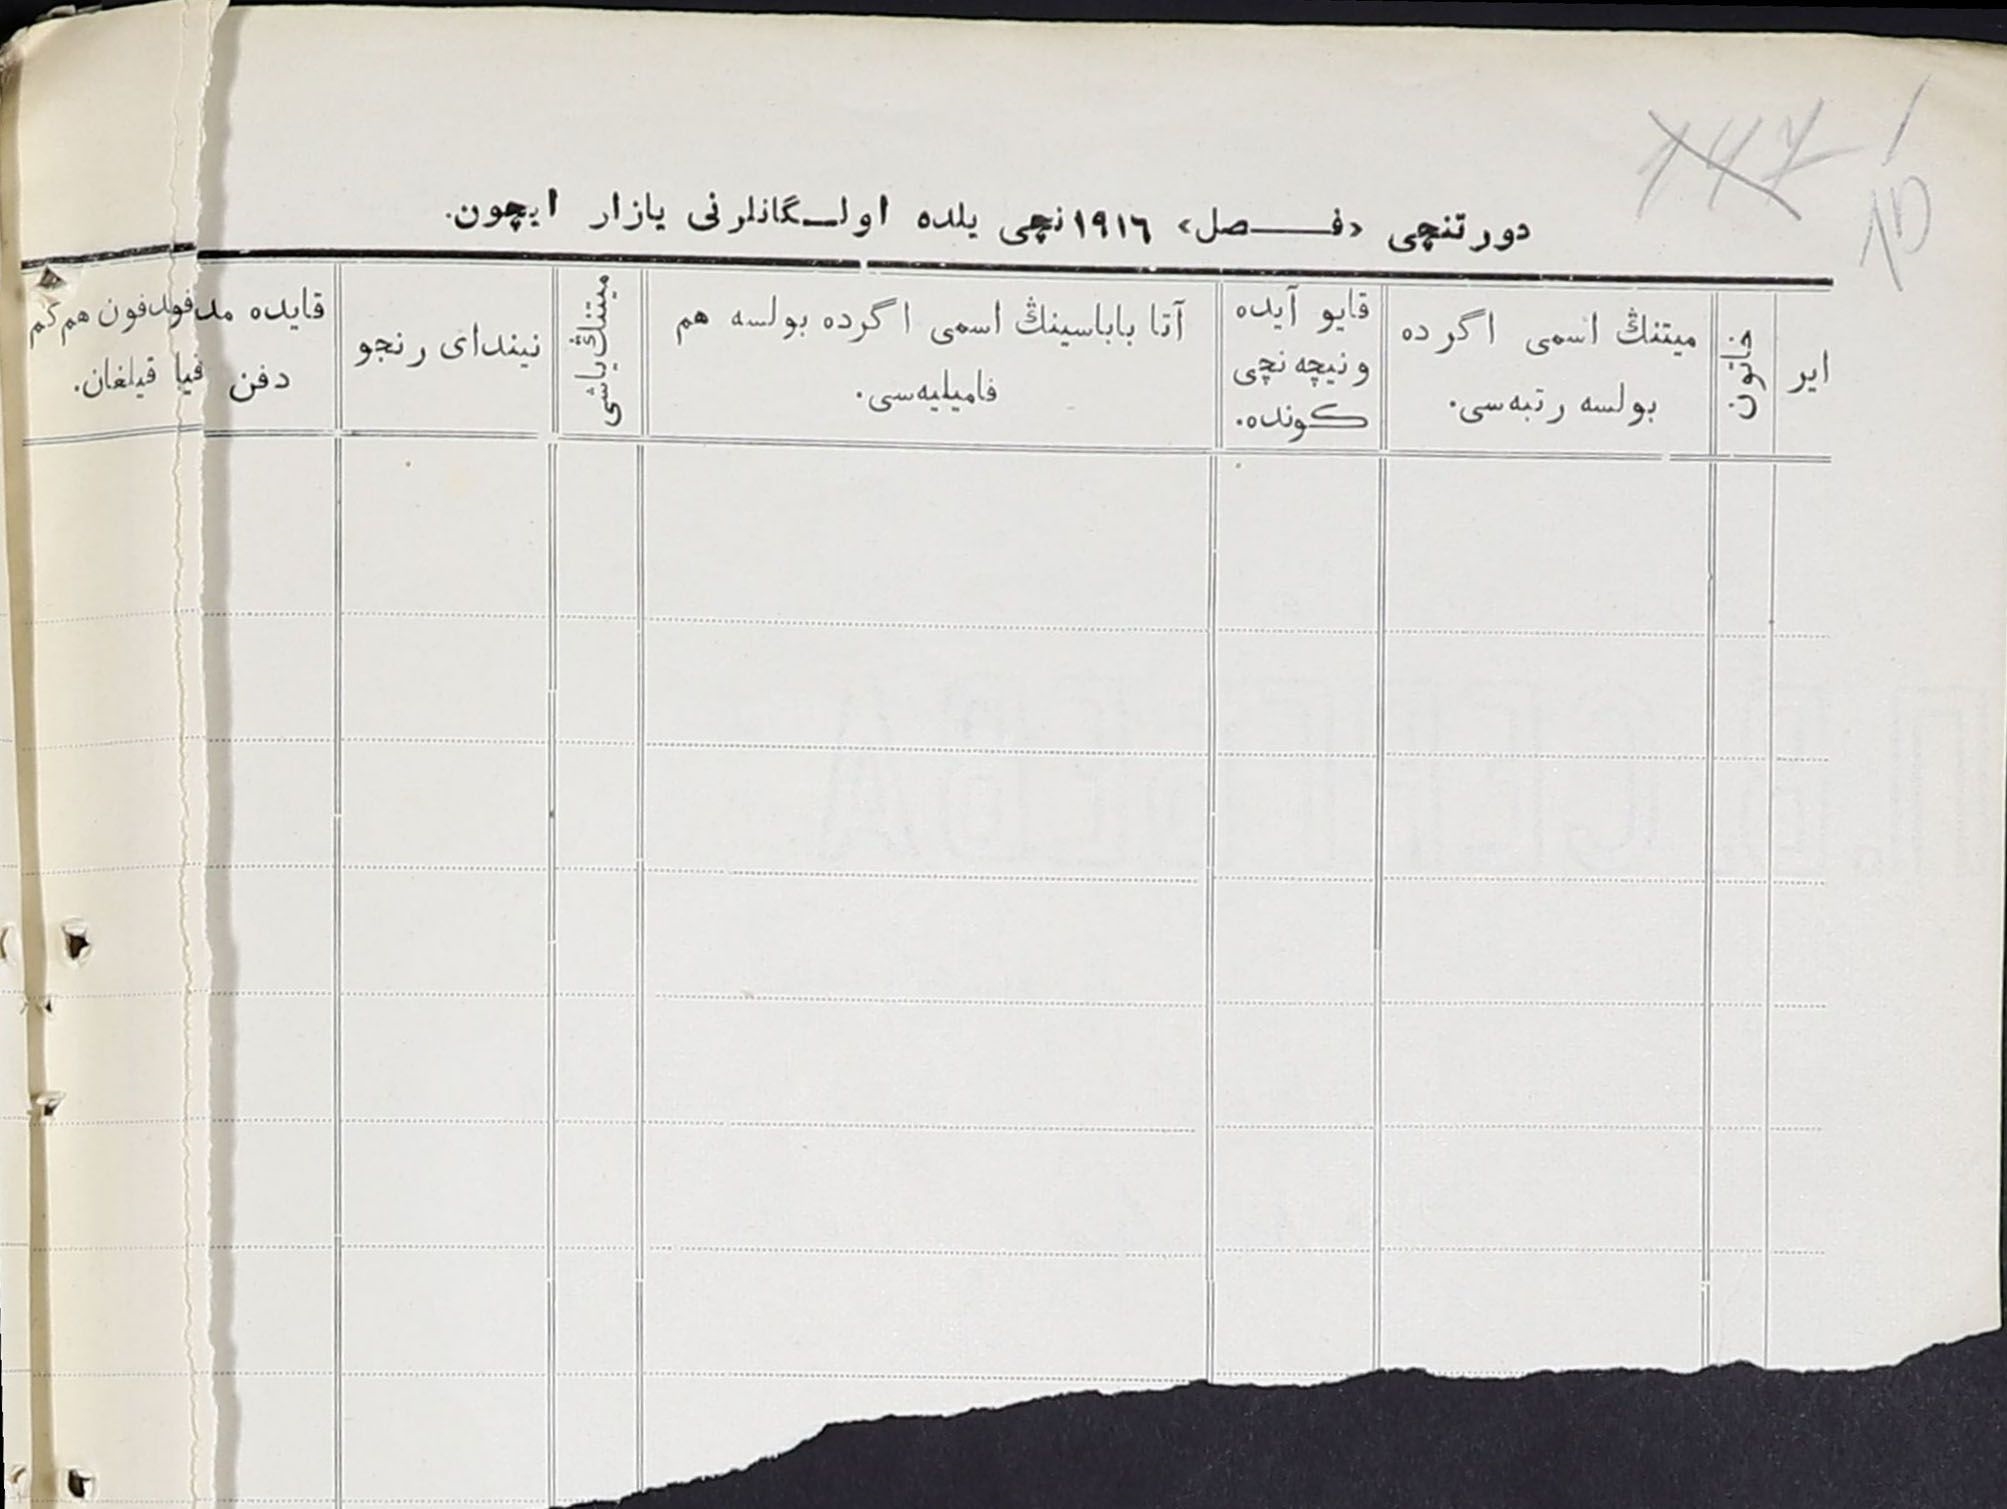 147
10
دورتنچی «فصل» ١٩١٦نچی یلده اولگانلرنی یازار ایچون.
ایر
خاتون
میتنڭ اسمی اگرده
بولسه رتبه‌سی.
قایو آیده
ونیچه نچی
كونده.
آتا باباسینڭ اسمی اگرده بولسه هم
فامیلیه‌سی.
میتنڭ یاشی
نیندای رنجو
قایده مدفون هم كم
دفن قیلغان.